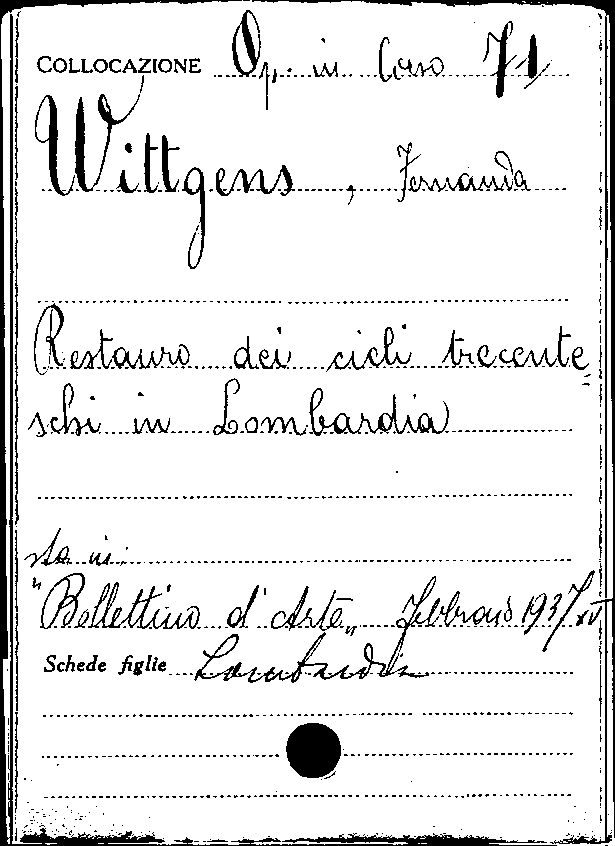 COLLOCAZIONE Op. in Corso 71
Wittgens, Fernanda
Restauro dei cicli trecente=
schi in Lombardia
sta in:
"Bollettino d'Arte„ febbraio 1937/XV
Schede figlie Lombardia